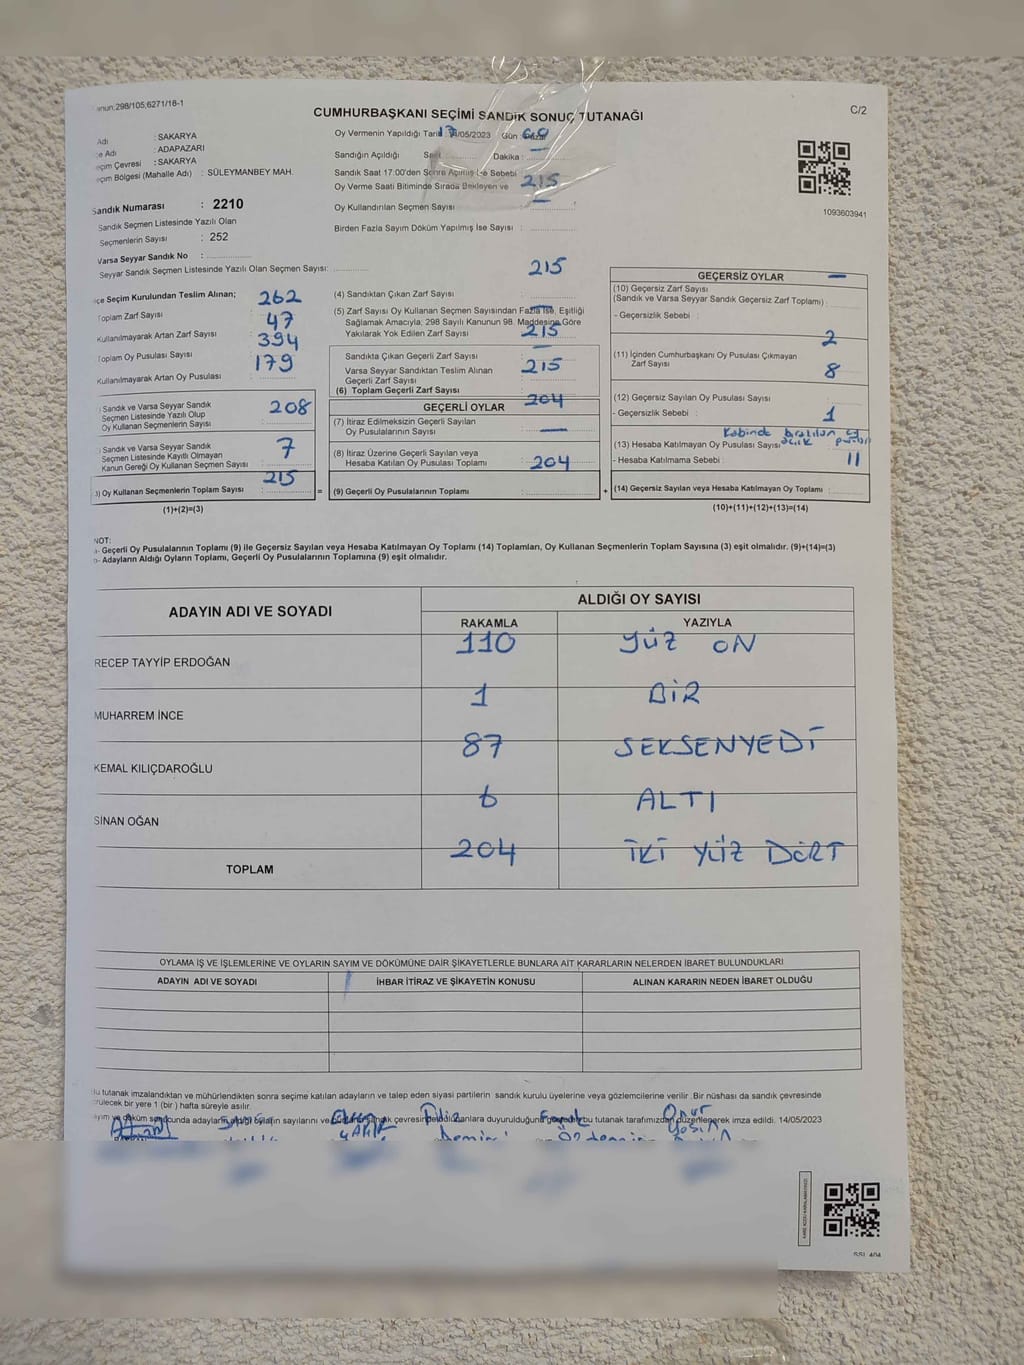 anun:298/105;6271/18-1
C/2
CUMHURBAŞKANI SEÇİMİ SANDIK SONUÇ TUTANAĞI
Adı : SAKARYA
çe Adı : ADAPAZARI
eçim Çevresi : SAKARYA
eçim Bölgesi (Mahalle Adı) : SÜLEYMANBEY MAH.
Sandık Numarası : 2210
Sandık Seçmen Listesinde Yazılı Olan
Seçmenlerin Sayısı : 252
Varsa Seyyar Sandık No :
Seyyar Sandık Listesinde Yazılı Olan Seçmen Sayısı:
Oy Vermenin Yapıldığı Tarih /05/2023 Gün :
Sandığın Açıldığı Dakika :
Sandık Saat 17.00'den Sonra Açılmış İse Sebebi
Oy Verme Saati Bitiminde Sırada Bekleyen ve 215
Oy Kullandırılan Seçmen Sayısı —
Birden Fazla Sayım Döküm Yapılmış İse Sayısı :
1093603941
çe Seçim Kurulundan Teslim Alınan; 262
Toplam Zarf Sayısı 47
Kullanılmayarak Artan Zarf Sayısı 394
Toplam Oy Pusulası Sayısı 179
Kullanılmayarak Artan Oy Pusulası
) Sandık ve Varsa Seyyar Sandık 208
Seçmen Listesinde Yazılı Olup
Oy Kullanan Seçmenlerin Sayısı
) Sandık ve Varsa Seyyar Sandık 7
Seçmen Listesinde Kayıtlı Olmayan
Kanun Gereği Oy Kullanan Seçmen Sayısı
215
) Oy Kullanan Seçmenlerin Toplam Sayısı
(1)+(2)=(3)
215
(4) Sandıktan Çıkan Zarf Sayısı :
(5) Zarf Sayısı Oy Kullanan Seçmen Sayısından Fazla İse, Eşitliği
Sağlamak Amacıyla, 298 Sayılı Kanunun 98. Maddesine Göre
Yakılarak Yok Edilen Zarf Sayısı 215
Sandıkta Çıkan Geçerli Zarf Sayısı —
Varsa Seyyar Sandıktan Teslim Alınan 215
Geçerli Zarf Sayısı
(6) Toplam Geçerli Zarf Sayısı
GEÇERLİ OYLAR 204
(7) İtiraz Edilmeksizin Geçerli Sayılan
Oy Pusulalarının Sayısı —
(8) İtiraz Üzerine Geçerli Sayılan veya
Hesaba Katılan Oy Pusulası Toplamı 204
= (9) Geçerli Oy Pusulalarının Toplamı
GEÇERSİZ OYLAR —
(10) Geçersiz Zarf Sayısı
(Sandık ve Varsa Seyyar Sandık Geçersiz Zarf Toplamı) :
- Geçersizlik Sebebi :
2
(11) İçinden Cumhurbaşkanı Oy Pusulası Çıkmayan
Zarf Sayısı 8
(12) Geçersiz Sayılan Oy Pusulası Sayısı :
- Geçersizlik Sebebi : 1
Kabinde bırakılan
açık
(13) Hesaba Katılmayan Oy Pusulası Sayısı
- Hesaba Katılmama Sebebi : 11
+ (14) Geçersiz Sayılan veya Hesaba Katılmayan Oy Toplamı :
(10)+(11)+(12)+(13)=(14)
NOT:
- Geçerli Oy Pusulalarının Toplamı (9) ile Geçersiz Sayılan veya Hesaba Katılmayan Oy Toplamı (14) Toplamları, Oy Kullanan Seçmenlerin Toplam Sayısına (3) eşit olmalıdır. (9)+(14)=(3)
- Adayların Aldığı Oyların Toplamı, Geçerli Oy Pusulalarının Toplamına (9) eşit olmalıdır.
ADAYIN ADI VE SOYADI ALDIĞI OY SAYISI
RAKAMLA YAZIYLA
110 YÜZ ON
RECEP TAYYİP ERDOĞAN
1 BİR
MUHARREM İNCE
87 SEKSENYEDİ
KEMAL KILIÇDAROĞLU
6 ALTI
SİNAN OĞAN
204 İKİ YÜZ DÖRT
TOPLAM
OYLAMA İŞ VE İŞLEMLERİNE VE OYLARIN SAYIM VE DÖKÜMÜNE DAİR ŞİKAYETLERLE BUNLARA AİT KARARLARIN NELERDEN İBARET BULUNDUKLARI
ADAYIN ADI VE SOYADI İHBAR İTİRAZ VE ŞİKAYETİN KONUSU ALINAN KARARIN NEDEN İBARET OLDUĞU
Bu tutanak imzalandıktan ve mühürlendikten sonra seçime katılan adayların ve talep eden siyasi partilerin sandık kurulu üyelerine veya gözlemcilerine verilir .Bir nüshası da sandık çevresinde
rülecek bir yere 1 (bir ) hafta süreyle asılır.
ayım ve döküm sonucunda adayların aldığı oyların sayılarını ve sandık çevresindeki ilanlara duyurulduğunu gösterir bu tutanak tarafımızdan düzenlenerek imza edildi. 14/05/2023
Filiz Onur
Demir Özdemir